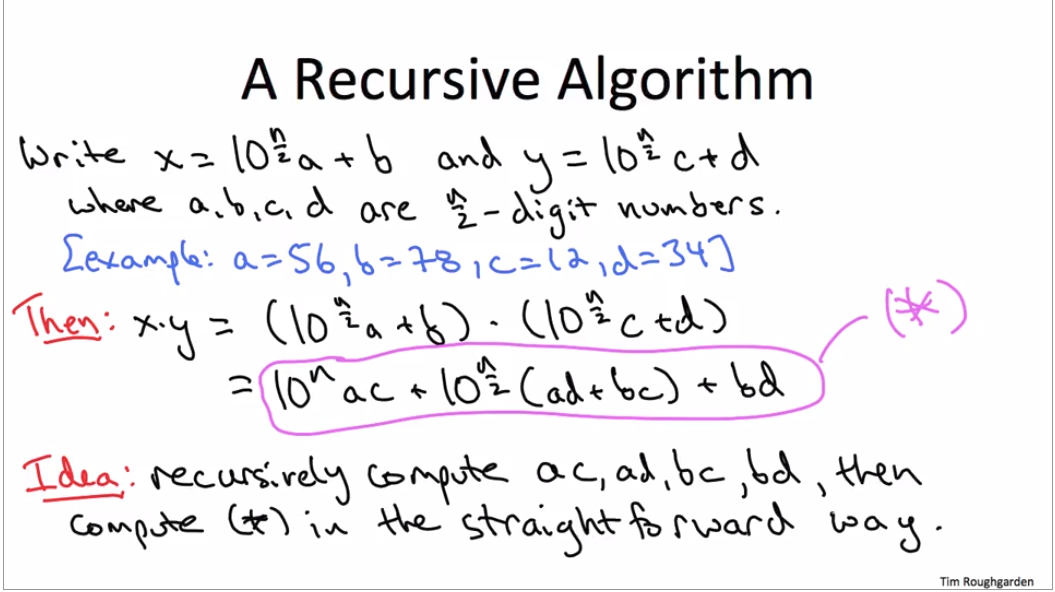 A Recursive Algorithm
Write x = 10^{n/2} a + b and y = 10^{n/2} c + d
where a, b, c, d are n/2 - digit numbers.
[example: a = 56, b = 78, c = 12, d = 34]
Then: x·y = (10^{n/2} a + b) · (10^{n/2} c + d) (*)
= 10^n ac + 10^{n/2} (ad + bc) + bd
Idea: recursively compute ac, ad, bc, bd, then
compute (*) in the straightforward way.
Tim Roughgarden